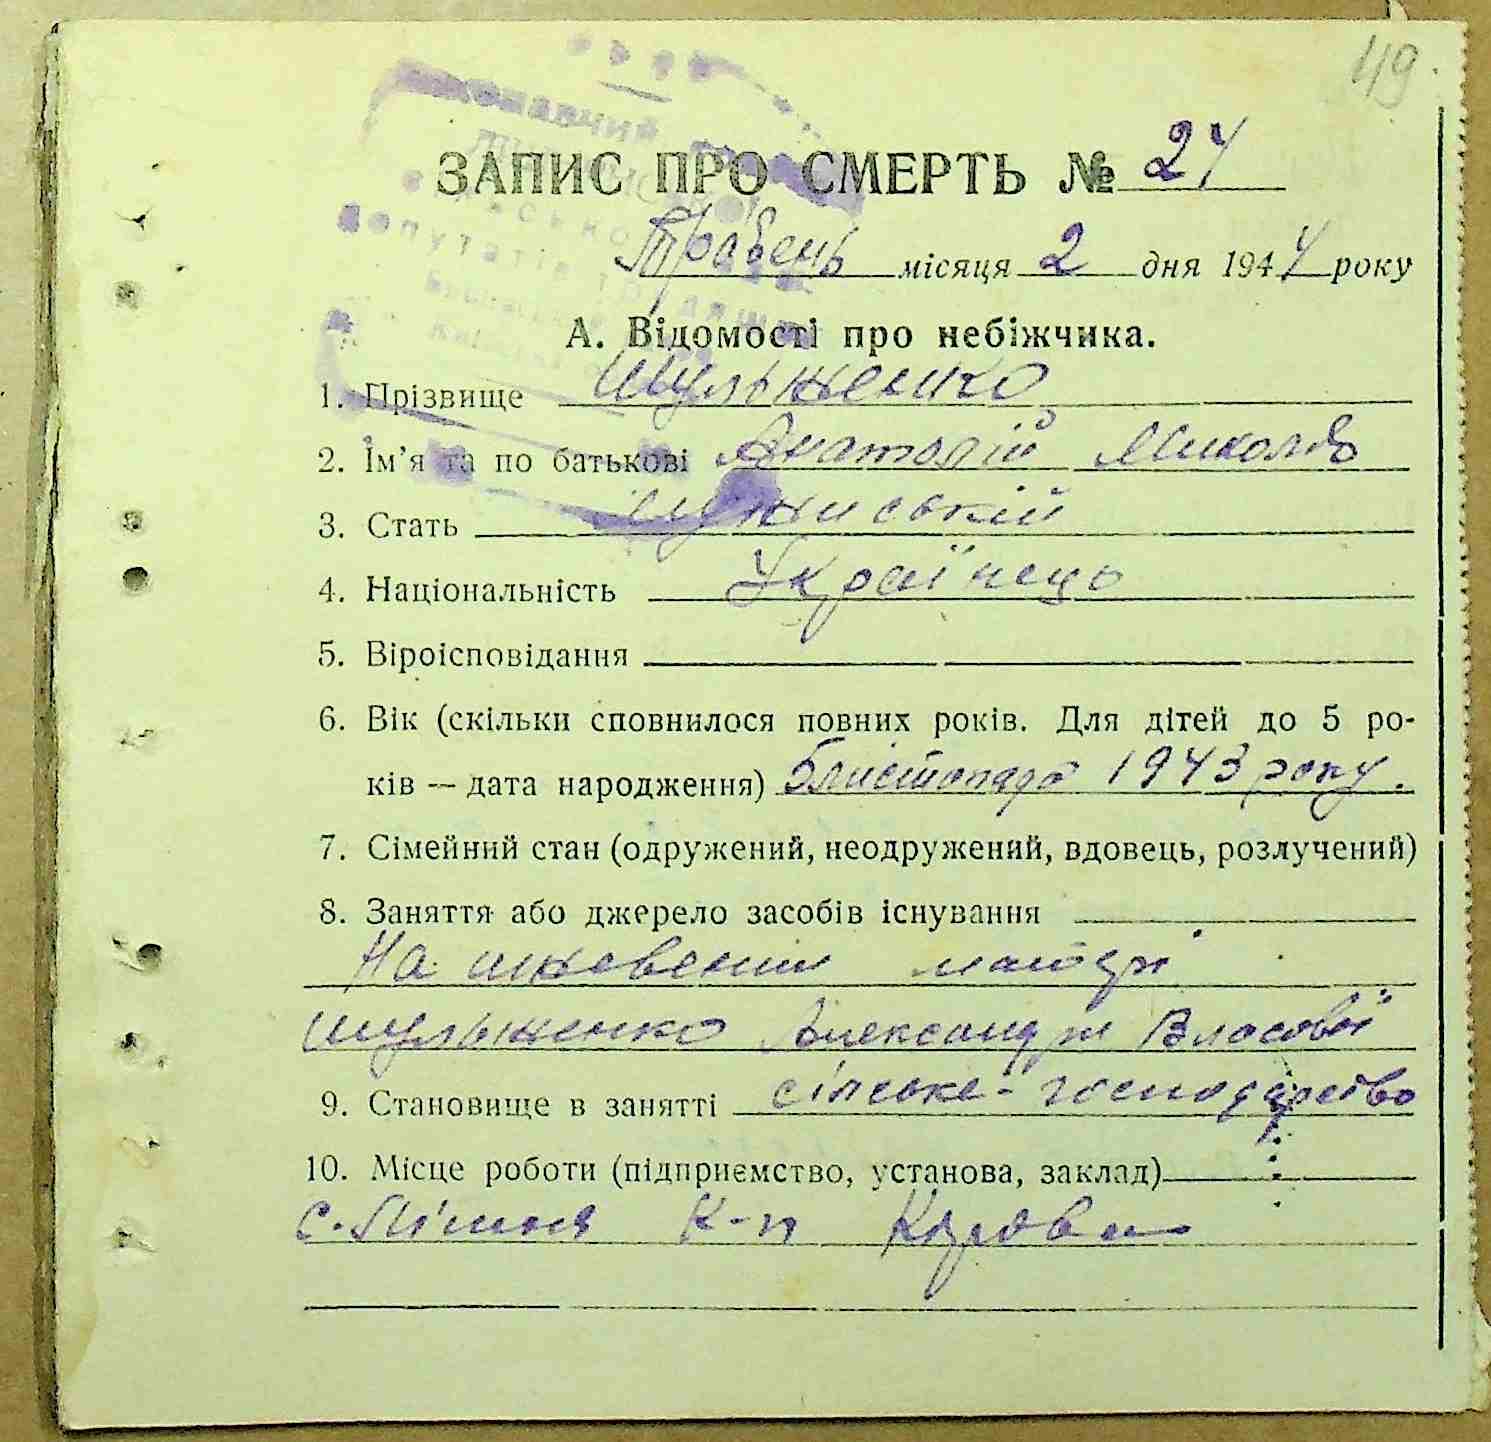 49.
ЗАПИС ПРО СМЕРТЬ № 24
Травень місяця 2 дня 1944 року
А. Відомості про небіжчика.
1. Прізвище Шульженко
2. Ім'я та по батькові Анатолій Микол
3. Стать Мужиській
4. Національність Українець
5. Віроісповідання
6. Вік (скільки сповнилося повних років. Для дітей до 5 ро-
ків — дата народження) 5 листопада 1943 року.
7. Сімейний стан (одружений, неодружений, вдовець, розлучений)
8. Заняття або джерело засобів існування
На матері
Шульженко Александри Власовой
9. Становище в занятті сільське-господарство
10. Місце роботи (підприємство, установа, заклад)
с. к-п Кірова